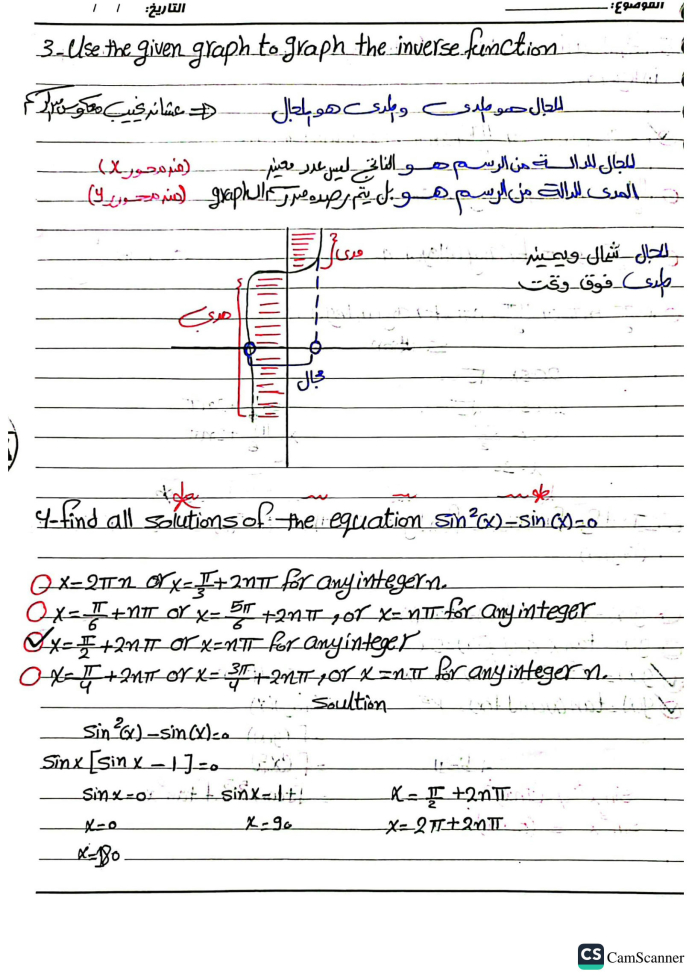 الموضوع: التاريخ: / /
3-Use the given graph to graph the inverse function
المجال هو المدى والمدى هو المجال ⇐ عشان نجيب معكوس
المجال للدالة من الرسم هو الناتج ليس عدد معين (من محور x)
المدى للدالة من الرسم هو بل يتم رصده من الـ graph (من محور y)
المجال شمال ويمين
المدى فوق وتحت
مدى
مدى
مجال
4-find all solutions of the equation sin²(x)-sin(x)=0
x=2πn or x=π/3+2nπ for any integer n.
x=π/6+nπ or x=5π/6+2nπ, or x=nπ for any integer
x=π/2+2nπ or x=nπ for any integer
x=π/4+2nπ or x=3π/4+2nπ, or x=nπ for any integer n.
Soultion
sin²(x)-sin(x)=0
sinx[sinx-1]=0
sinx=0 sinx=1 x=π/2+2nπ
x=0 x=90 x=2π+2nπ
x=180
CS CamScanner